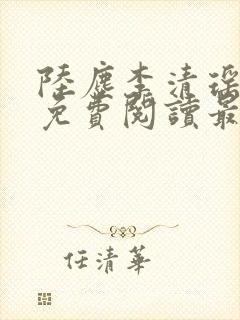 陸塵李清瑶
免費閱讀最
任清華